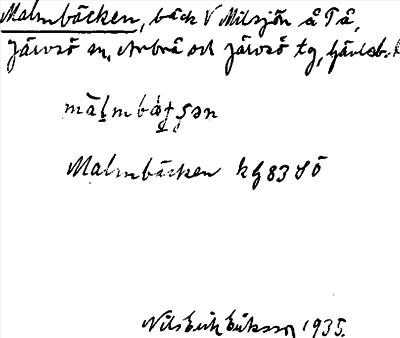 Malmbäcken, bäck V Milsjön å Tå,
Järvsö sn, Arbrå och Järvsö tg, Gävleb. l.
Malmbäcken kg 83 SÖ
Nils Erik Eriksson 1935.